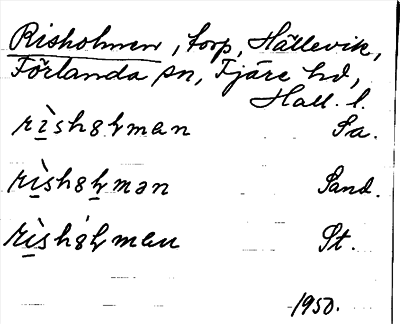 Risholmen, torp, Hällevik,
Förlanda sn, Fjäre hd,
Hall. l.
Sa.
Sand.
St.
1950.